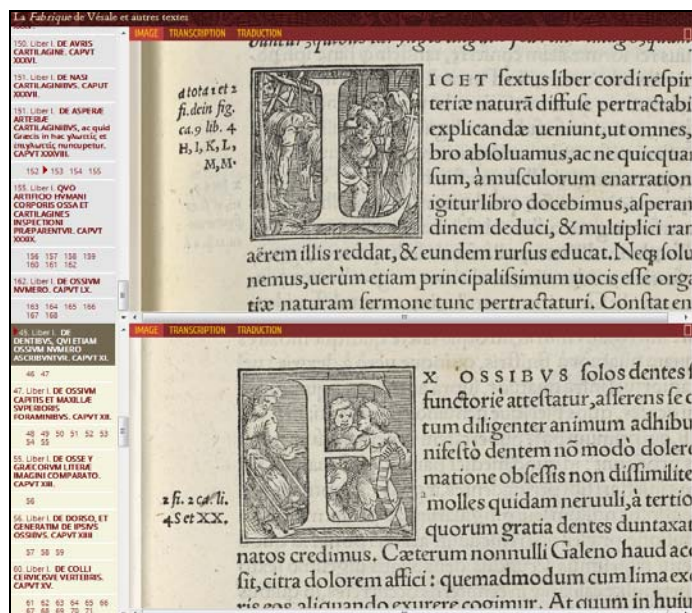 La Fabrique de Vésale et autres textes
150. Liber I. DE AVRIS
CARTILAGINE. CAPVT
XXXVI.
151. Liber I. DE NASI
CARTILAGINIBVS. CAPUT
XXXVII.
151. Liber I. DE ASPERÆ
ARTERIÆ
CARTILAGINIBVS, ac quid
Græcis in hac γλωττίς et
επιγλωττίς nuncupetur.
CAPVT XXXVIII.
152 153 154 155
155. Liber I. QVO
ARTIFICIO HVMANI
CORPORIS OSSA ET
CARTILAGINES
INSPECTIONI
PRÆPARENTVR. CAPVT
XXXIX.
156 157 158 139
160 161 162
162. Liber I. DE OSSIVM
NVMERO. CAPVT LX.
163 164 165 166
167 168
IMAGE TRANSCRIPTION TRADUCTION
a tota 1 et 2
fi. dein fig.
ca. 9 lib. 4
H, I, K, L,
M, M.
LICET ſextus liber cordi reſpir
teriæ naturã diffuſe pertractabi
explicandæ ueniunt, ut omnes,
bro abſoluamus, ac ne quicqua
ſum, à muſculorum enarration
igitur libro docebimus, aſperam
dinem deduci, & multiplici ram
aërem illis reddat, & eundem rurſus educat. Neqʒ ſolu
nemus, uerùm etiam principaliſsimum uocis eſſe orga
tiæ naturam ſermone tunc pertractaturi. Conſtat en
45. Liber I. DE
DENTIBVS, QVI ETIAM
OSSIVM NVMERO
ASCRIBVNTVR. CAPVT XI.
46 47
47. Liber I. DE OSSIVM
CAPITIS ET MAXILLÆ
SVPERIORIS
FORAMINIBVS. CAPVT XII.
48 49 50 51 52 53
54 55
55. Liber I. DE OSSE Y
GRÆCORVM LITERÆ
IMAGINI COMPARATO.
CAPVT XIII.
56
56. Liber I. DE DORSO, ET
GENERATIM DE IPSIVS
OSSIBVS. CAPVT XIIII
57 58 59
60. Liber I. DE COLLI
CERVICISVE VERTEBRIS.
CAPVT XV.
61 62 63 64 65 66
67 68 69 70 71
IMAGE TRANSCRIPTION TRADUCTION
2 fi. 2 ca. li.
4 S et XX.
EX OSSIBVS ſolos dentes ſ
functoriè atteſtatur, aſſerens ſe d
tum diligenter animum adhibu
nifeſtò dentem nõ modò dolere
matione obſeſſis non diſsimilite
molles quidam neruuli, à tertio
quorum gratia dentes duntaxat
natos credimus. Cæterum nonnulli Galeno haud acc
ſit, citra dolorem affici: quemadmodum cum lima ex
ris eos aliquando exurere cogimur. At quum in huiu